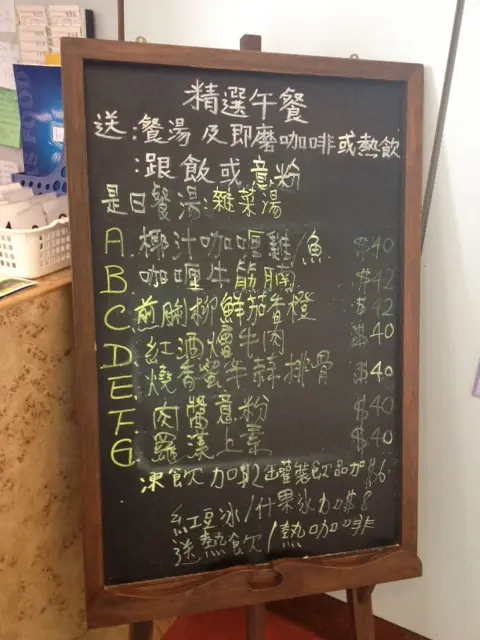 精選午餐
送:餐湯及即磨咖啡或熱飲
:跟飯或意粉
是日餐湯:雜菜湯
A. 椰汁咖喱雞/魚 $40
B. 咖喱牛筋腩 $42
C. 煎 柳鮮茄香橙 $42
D. 紅酒燴牛肉 $40
E. 燒香蜜羊 排骨 $40
F. 肉醬意粉 $40
G. 羅漢上素 $40
凍飲加$2 罐裝飲品加$6
紅豆冰/什果冰加$8
送熱飲/熱咖啡